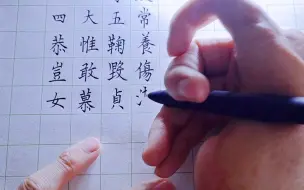 四大五常
恭惟鞠養
豈敢毀傷
女慕貞